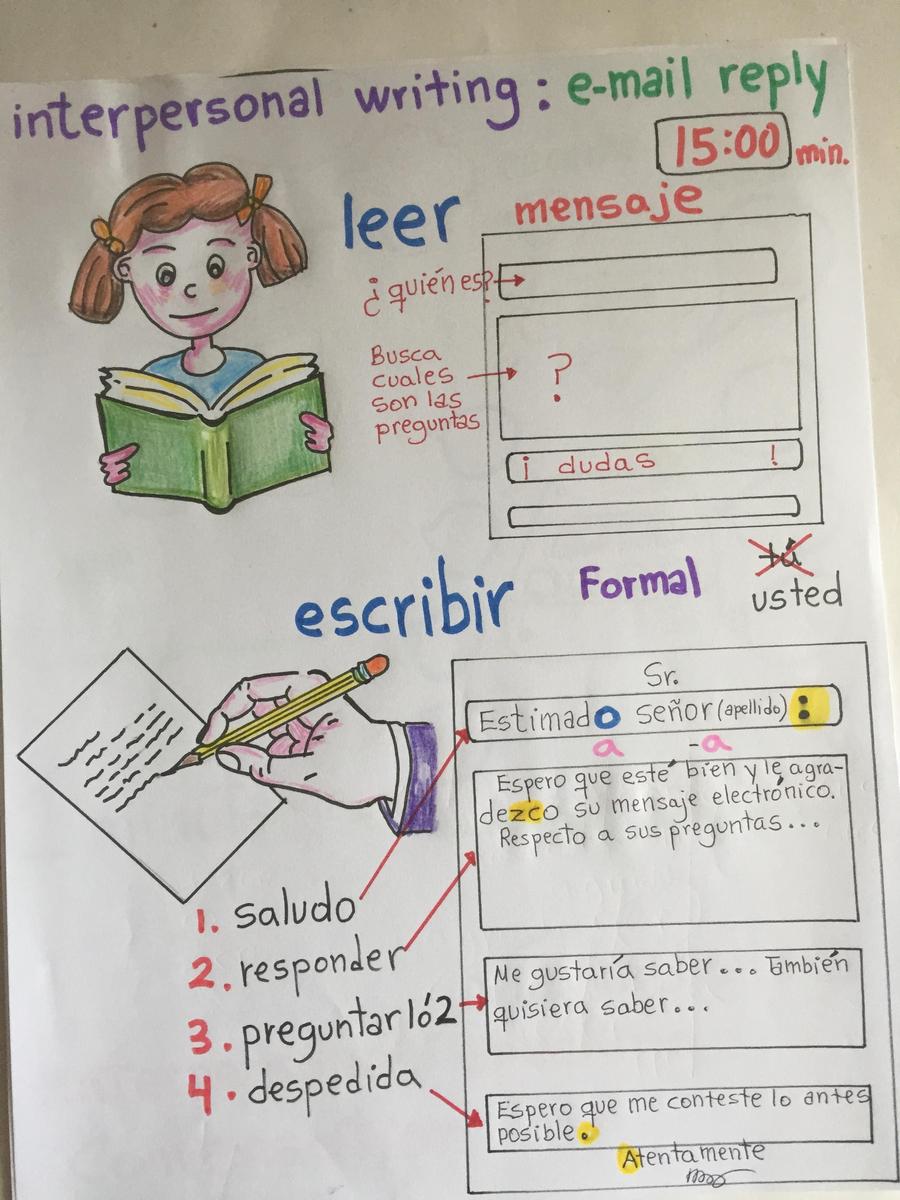 interpersonal writing: e-mail reply
15:00 min.
leer
mensaje
¿quién es?
Busca
cuales
son las
preguntas
?
¡ dudas !
escribir
Formal
tú
usted
Sr.
Estimado señor (apellido) :
a -a
Espero que esté bien y le agra-
dezco su mensaje electrónico.
Respecto a sus preguntas...
1. saludo
2. responder
3. preguntar 1ó2
4. despedida
Me gustaría saber... También
quisiera saber...
Espero que me conteste lo antes
posible.
Atentamente